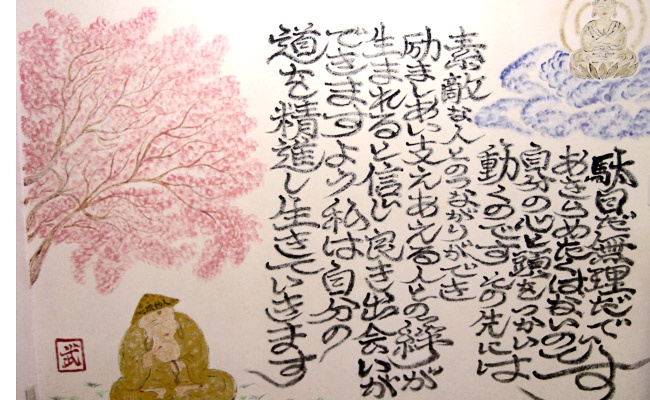 駄目だ無理だで
あきらめたくはないのです
自分の心と頭をつかい
動くのですその先には
素敵な人とのつながりができ
励ましあい支えあえる人との絆が
生まれると信じ良き出会いが
できますよう私は自分の
道を精進し生きていきます
武